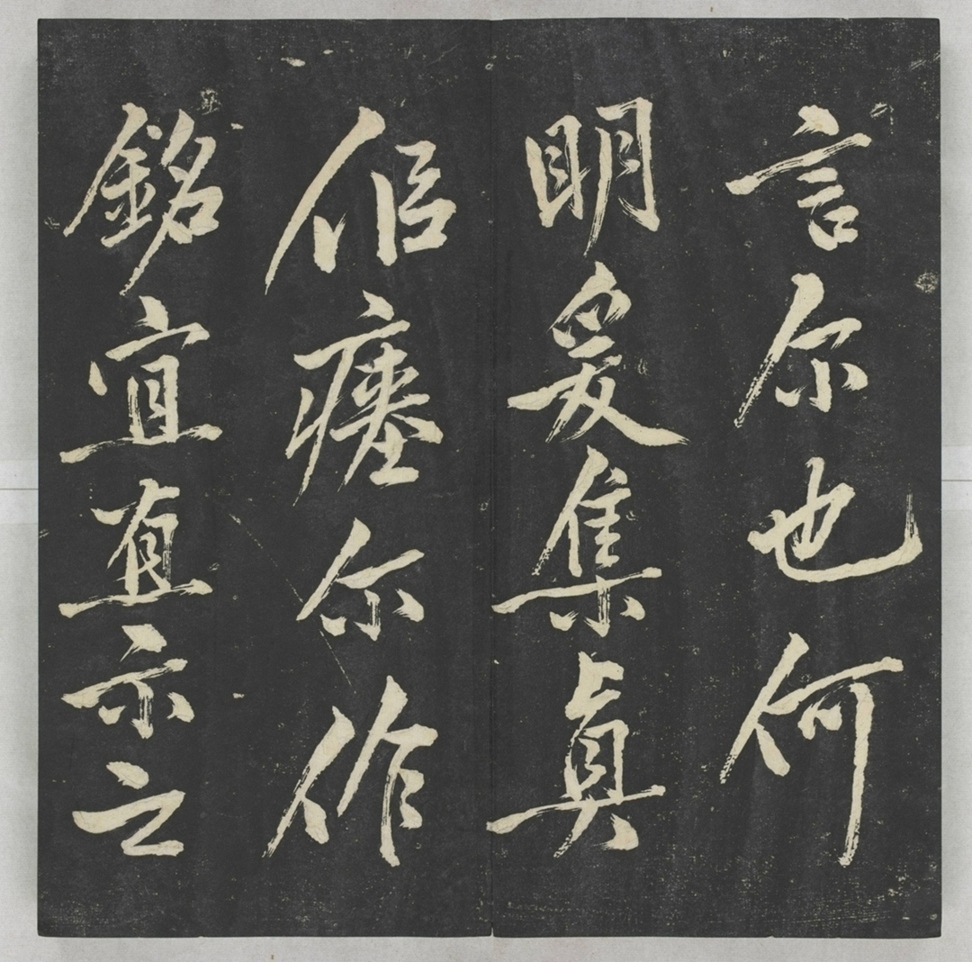 言尔也何
明爰集真
侣瘞尔作
銘宜直示之